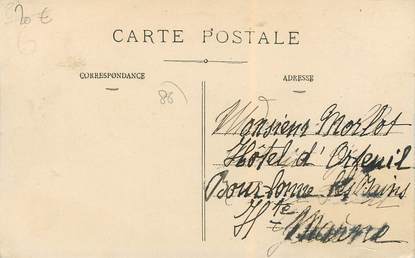 20 €
CARTE POSTALE
CORRESPONDANCE
ADRESSE
(88)
Monsieur Morlot
Hôtel d'Orfeuil
Bourbonne les Bains
Hte Marne